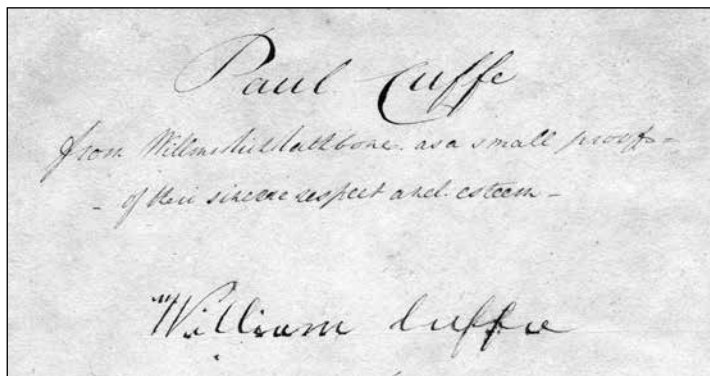 Paul Cuffe
from as a small proof -
- of their sincere respect and esteem -
William Cuffe